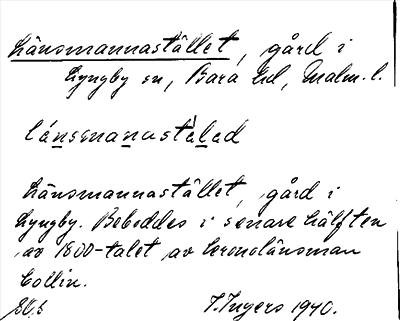 Länsmannastället, gård i
Lyngby sn, Bara hd, Malm. l.
länsmanastàlad
Länsmannastället, gård i
Lyngby. Beboddes i senare hälften
av 1800-talet av kronolänsman
Collin.
I. Ingers 1940.